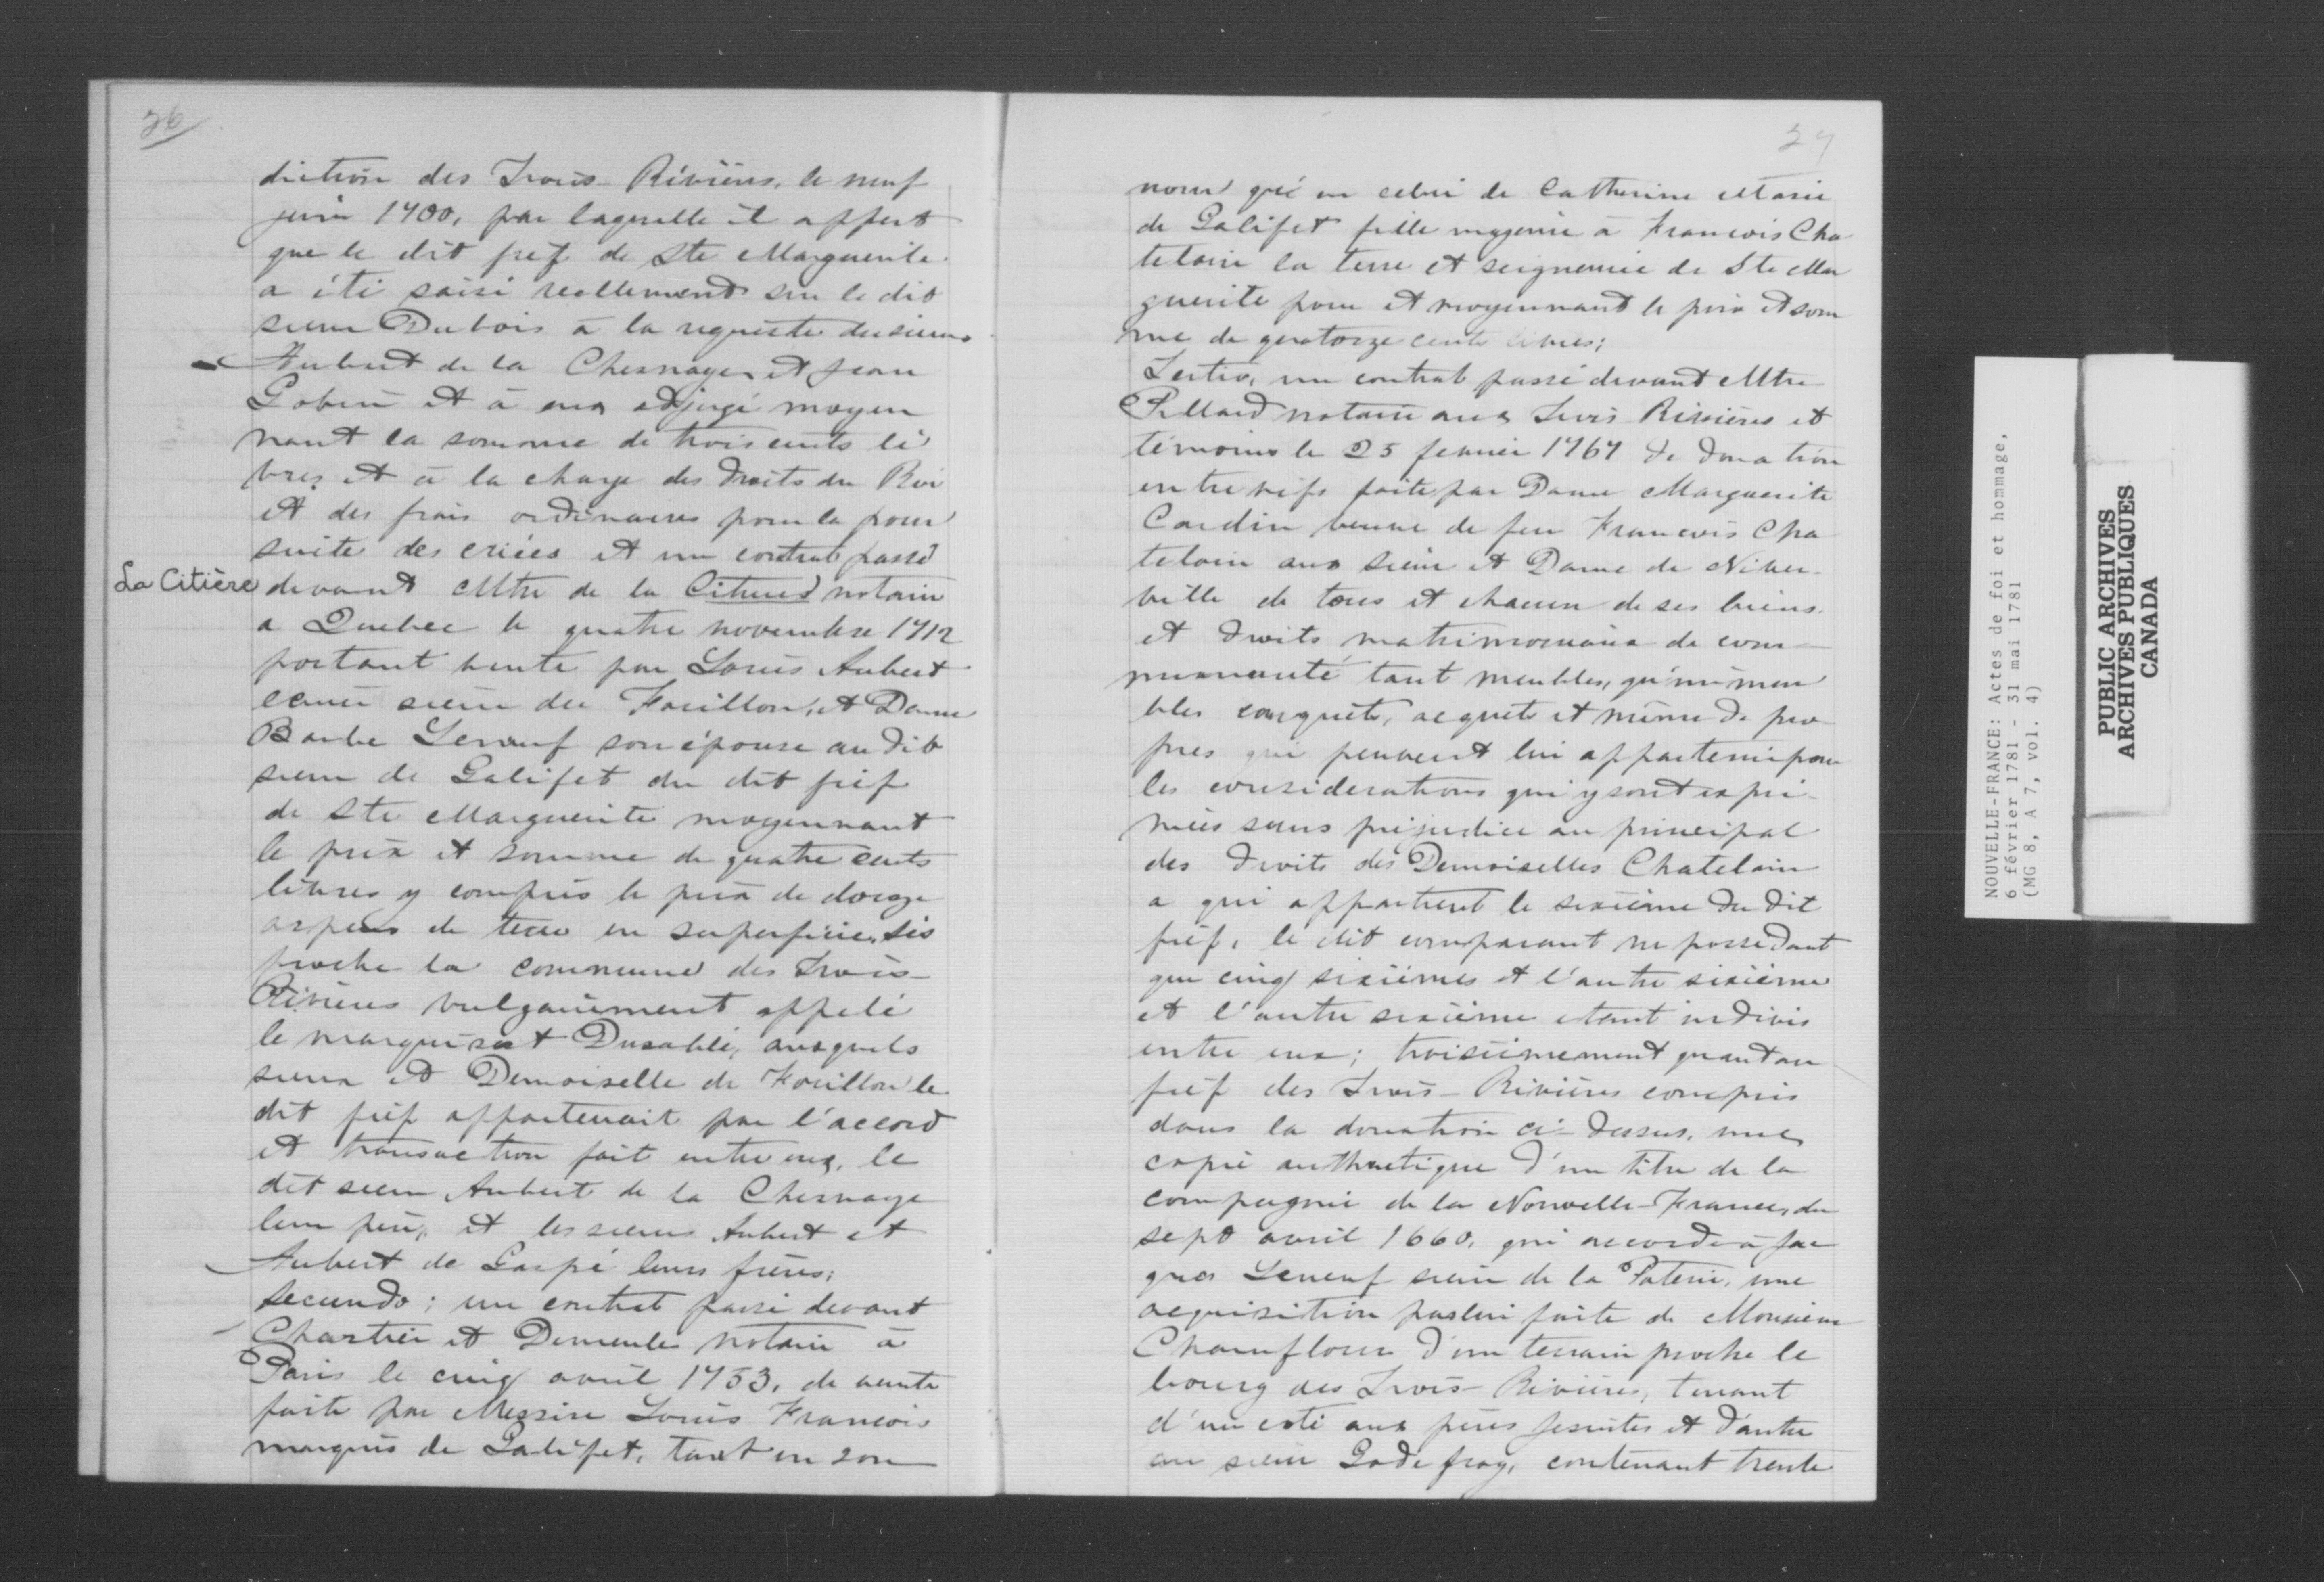 26
diction des Trois-Rivières, le neuf
juin 1700, par laquelle il appert
que le dit fief de Ste Marguerite
a été saisi reellement sur le dit
sieur Dubois à la requeste du sieurs
Aubert de la Chesnaye et Jean
Gobin et à eux adjugé moyen
nant la somme de trois cents li
vres et à la charge des droits du Roi
et des frais ordinaires pour la pour
suite des criées et un contrat passé
La Citière
devant Mtre de la notaire
a Quebec le quatre novembre 1712
portant vente par Louis Aubert
ecuier sieur du Forillon, et Dame
Barbe Leneuf son épouse au dit
sieur de Galifet du dit fief
de Ste Marguerite moyennant
le prix et somme de quatre cents
livres y compris le prix de douze
arpens de terre en superficie, sis
proche la commune des Trois-
Rivières vulgairement appelé
le marquisat Dusablé, auxquels
sieur et Demoiselle de Forillon le
dit fief appartenait par l'accord
et transaction fait entre eux, le
dit sieur Aubert de la Chesnaye
leur père, et les sieurs Aubert et
Aubert de Gaspé leurs frères;
Secundo; un contrat passé devant
Chartier et notaire à
Paris le cinq avril 1753, de vente
faite par Messire Louis Francois
marquis de Galifet, tant en son
27
nom qué en celui de Catherine Marie
de Galifet fille majeure à Francois Cha
telain la terre et seigneurie de Ste Mar
guerite pour et moyennant le prix et som
me de quatorze cents livres;
Tertio, un contrat passé devant Mtre
Pillard notaire aux Trois-Rivières et
témoins le 25 fevrier 1767 de donation
entre vifs faite par Dame Marguerite
Cardin veuve de feu Francois Cha
telain aux sieur et Dame de Niver-
ville de tous et chacun de ses biens
et droits matrimoniaux de com-
munauté tant meubles, qu'immeu
bles conquêts, acquets et même de pro
pres qui peuvent lui appartenir pour
les considerations qui y sont expri-
mées sans préjudice au principal
des droits des Demoiselles Chatelain
a qui appartient le sixième du dit
fief, le dit comparant ne possedant
que cinq sixièmes et l'autre sixième
et l'autre sixième etant indivis
entre eux; troisièmement quant au
fief des Trois-Rivières compris
dans la donation ci-dessus, une
copie authentique d'un titre de la
compagnie de la Nouvelle-France, du
sept avril 1660, qui accorde à Jac
ques Leneuf sieur de la Poterie, une
acquisition par lui faite de Monsieur
Chamflour d'un terrain proche le
bourg des Trois-Rivières, tenant
d'un coté aux pères Jesuites et d'autre
au sieur Godefroy, contenant trente
NOUVELLE-FRANCE: Actes de foi et hommage,
6 février 1781 - 31 mai 1781
(MG 8, A 7, vol. 4)
PUBLIC ARCHIVES
ARCHIVES PUBLIQUES
CANADA